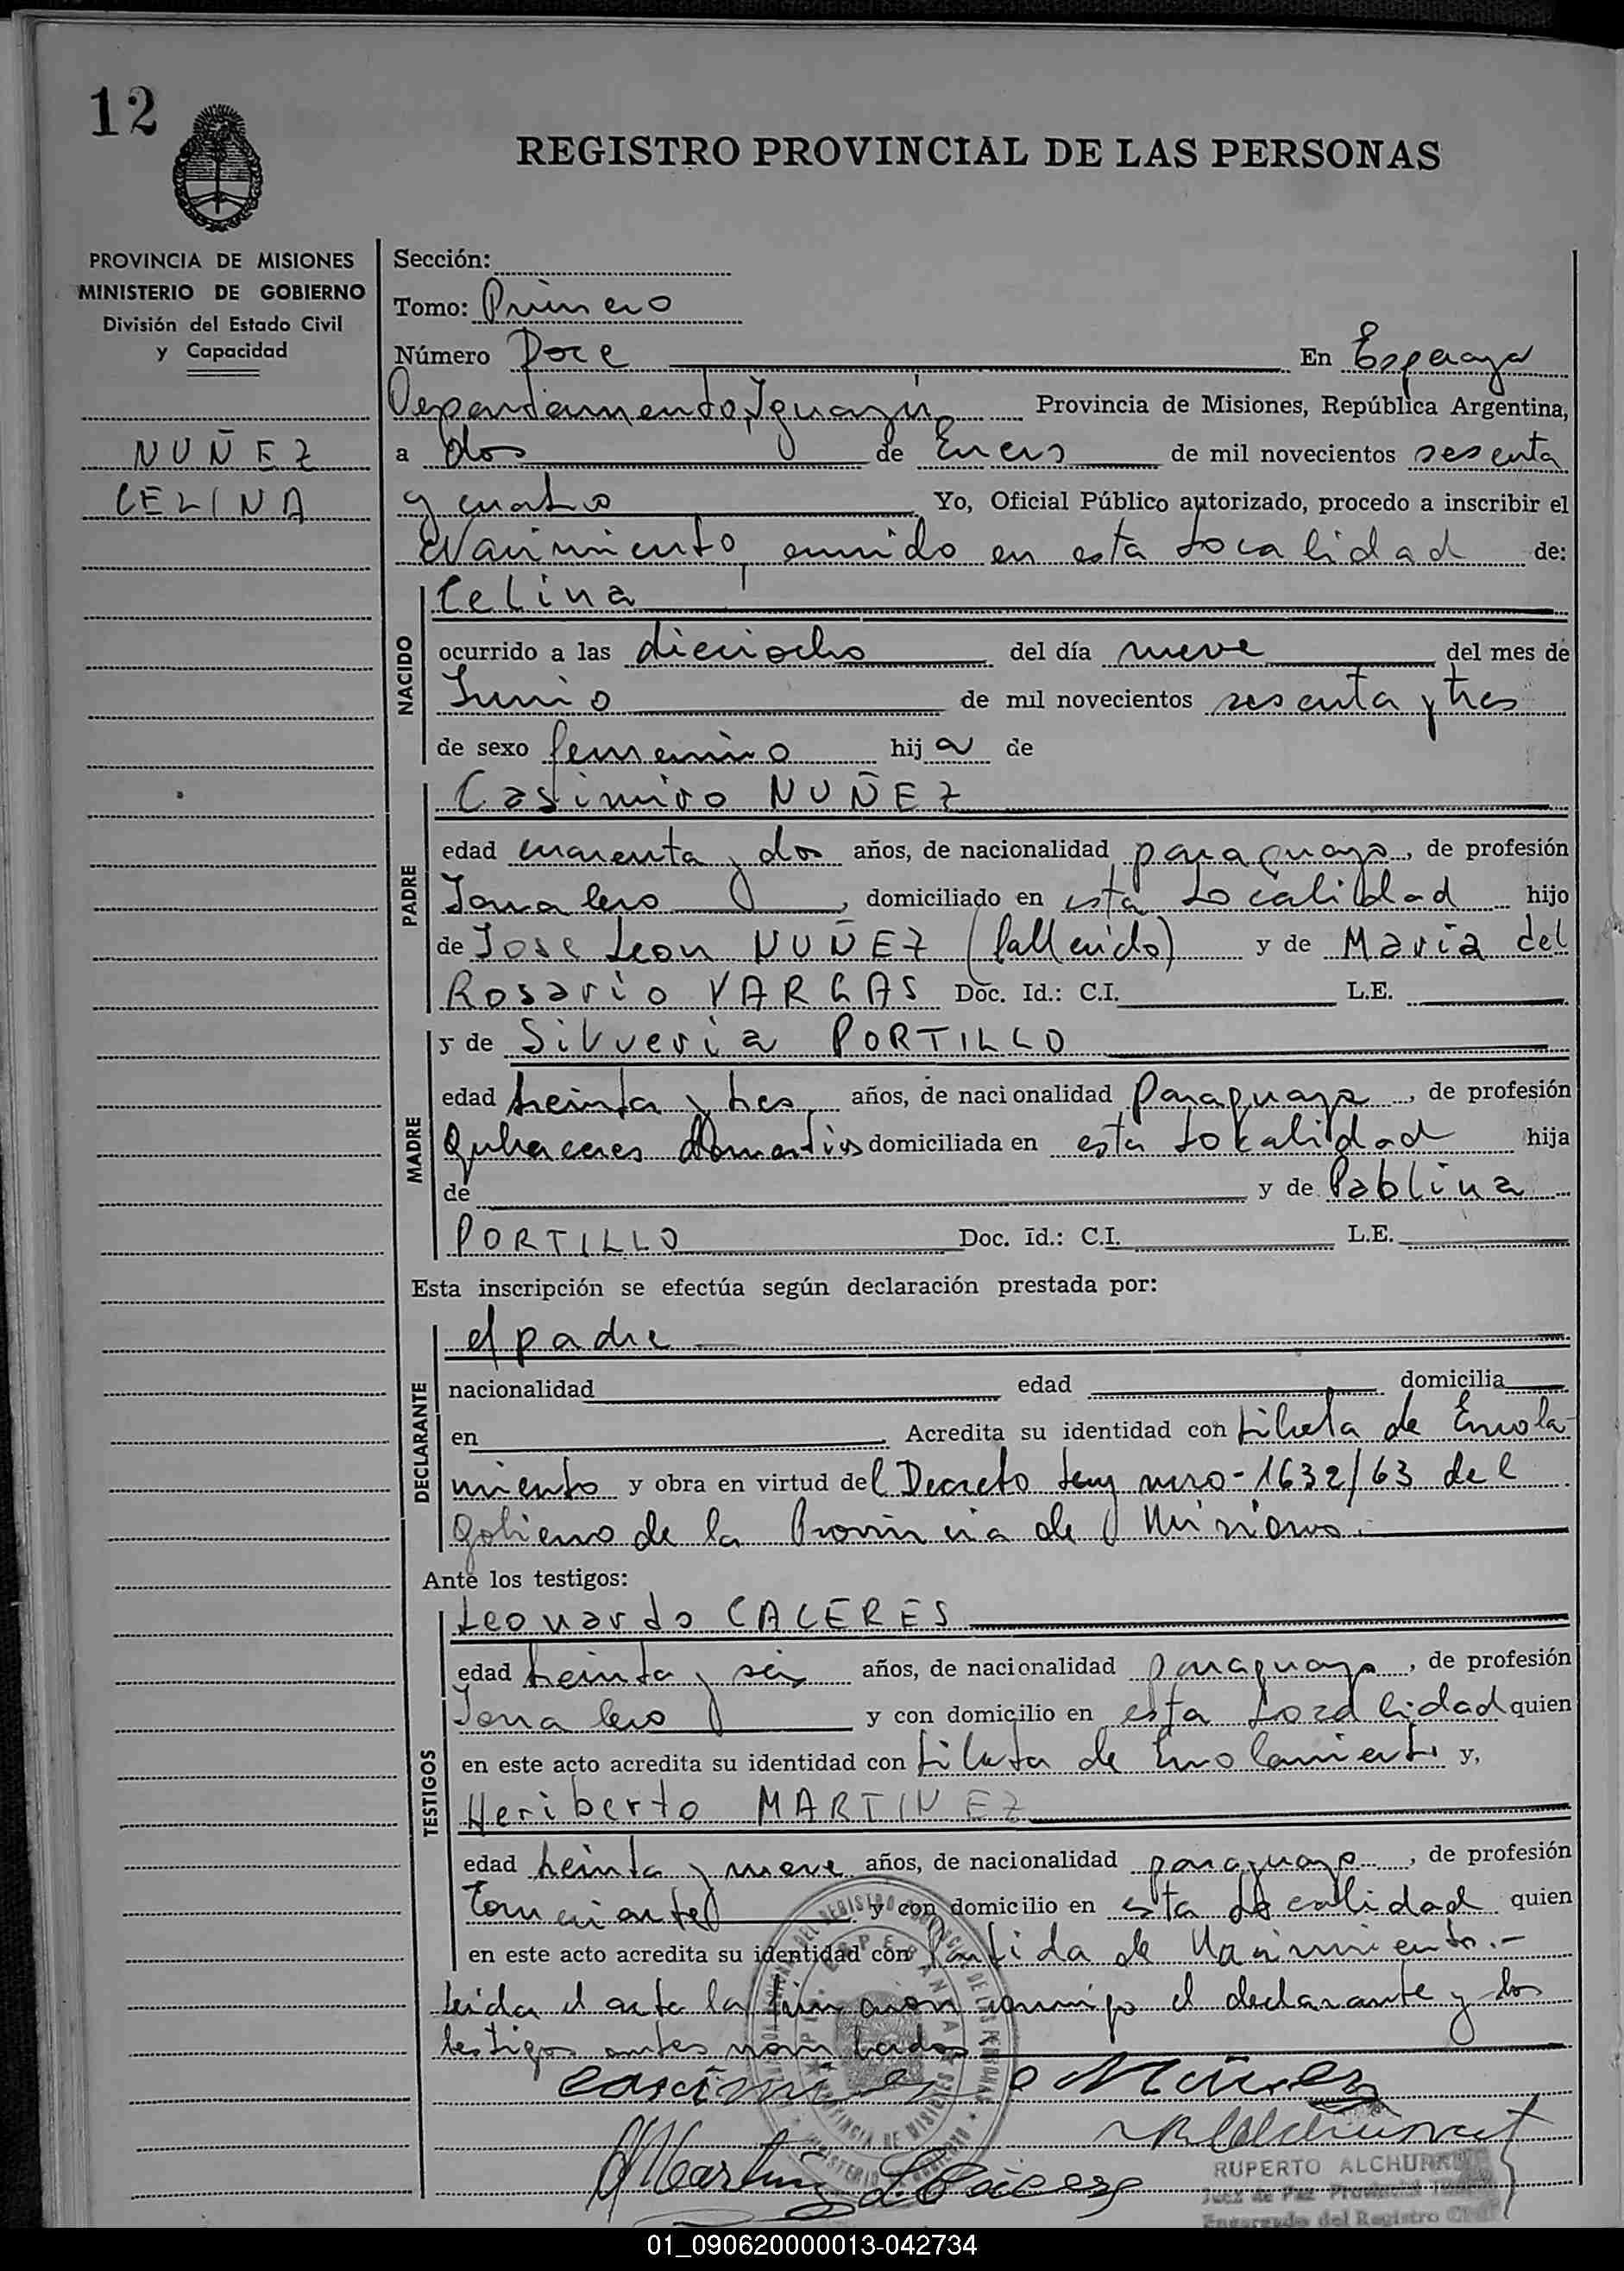 12
REGISTRO PROVINCIAL DE LAS PERSONAS
PROVINCIA DE MISIONES
MINISTERIO DE GOBIERNO
División del Estado Civil
y Capacidad
NUÑEZ
CELINA
Sección:
Tomo: Primero
Número Doce En Esperanza
Departamento Iguazú Provincia de Misiones, República Argentina,
a dos de Enero de mil novecientos sesenta
y cuatro Yo, Oficial Público autorizado, procedo a inscribir el
Nacimiento, ocurrido en esta Localidad de:
NACIDO
Celina
ocurrido a las dieciocho del día nueve del mes de
Junio de mil novecientos sesenta y tres
de sexo femenino hija de
PADRE
Casimiro NUÑEZ
edad cuarenta y dos años, de nacionalidad paraguayo, de profesión
Jornalero, domiciliado en esta Localidad hijo
de Jose Leon NUÑEZ (fallecido) y de Maria del
Rosario VARGAS Doc. Id.: C.I. L.E.
MADRE
y de Silveria PORTILLO
edad treinta y tres años, de nacionalidad Paraguaya, de profesión
Quehaceres domesticos domiciliada en esta Localidad hija
de y de Pablina
PORTILLO Doc. Id.: C.I. L.E.
Esta inscripción se efectúa según declaración prestada por:
DECLARANTE
el padre
nacionalidad edad domicilia
en Acredita su identidad con Libreta de Enrola-
miento y obra en virtud del Decreto Ley nro-1632/63 del
Gobierno de la Provincia de Misiones.
Ante los testigos:
TESTIGOS
Leonardo CACERES
edad treinta y seis años, de nacionalidad paraguayo, de profesión
Jornalero y con domicilio en esta Localidad quien
en este acto acredita su identidad con Libreta de Enrolamiento y,
Heriberto MARTINEZ
edad treinta y nueve años, de nacionalidad paraguayo, de profesión
Comerciante y con domicilio en esta Localidad quien
en este acto acredita su identidad con Partida de Nacimiento.-
Leida el acta la firmaron conmigo el declarante y los
testigos antes nombrados
casimiro Nuñez
HMartinez LCaceres
RUPERTO ALCHURRUT
Juez de Paz
Encargado del Registro Civil
01_090620000013-042734